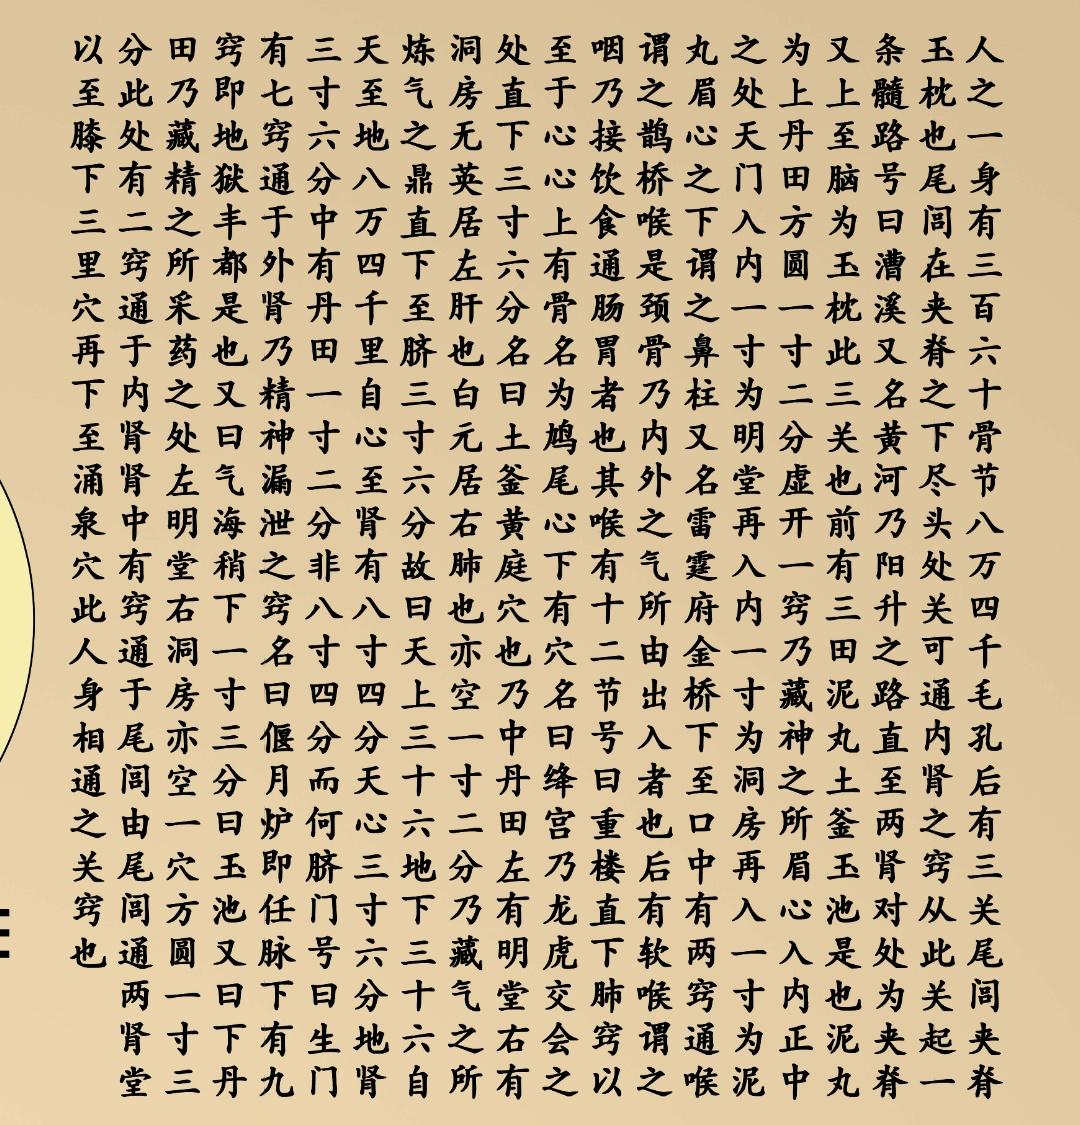 人之一身有三百六十骨节八万四千毛孔后有三关尾闾夹脊
玉枕也尾闾在夹脊之下尽头处关可通内肾之窍从此关起一
条髓路号曰漕溪又名黄河乃阳升之路直至两肾对处为夹脊
又上至脑为玉枕此三关也前有三田泥丸土釜玉池是也泥丸
为上丹田方圆一寸二分虚开一窍乃藏神之所眉心入内正中
之处天门入内一寸为明堂再入内一寸为洞房再入一寸为泥
丸眉心之下谓之鼻柱又名雷霆府金桥下至口中有两窍通喉
谓之鹊桥喉是颈骨乃内外之气所由出入者也后有软喉谓之
咽乃接饮食通肠胃者也其喉有十二节号曰重楼直下肺窍以
至于心心上有骨名为鸠尾心下有穴名曰绛宫乃龙虎交会之
处直下三寸六分名曰土釜黄庭穴也乃中丹田左有明堂右有
洞房无英居左肝也白元居右肺也亦空一寸二分乃藏气之所
炼气之鼎直下至脐三寸六分故曰天上三十六地下三十六自
天至地八万四千里自心至肾有八寸四分天心三寸六分地肾
三寸六分中有丹田一寸二分非八寸四分而何脐门号曰生门
有七窍通于外肾乃精神漏泄之窍名曰偃月炉即任脉下有九
窍即地狱丰都是也又曰气海稍下一寸三分曰玉池又曰下丹
田乃藏精之所采药之处左明堂右洞房亦空一穴方圆一寸三
分此处有二窍通于内肾肾中有窍通于尾闾由尾闾通两肾堂
以至膝下三里穴再下至涌泉穴此人身相通之关窍也